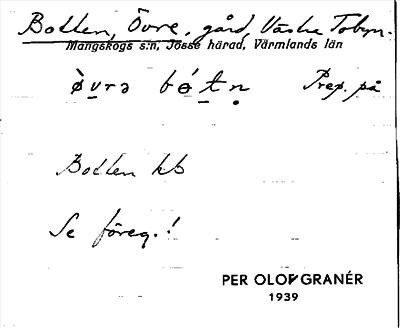 Botten, Övre, gård, Västra Tobyn.
Mangskogs s:n, Jösse härad, Värmlands län
Prep. på
Botten kb
Se föreg.!
PER OLOF GRANÉR
1939